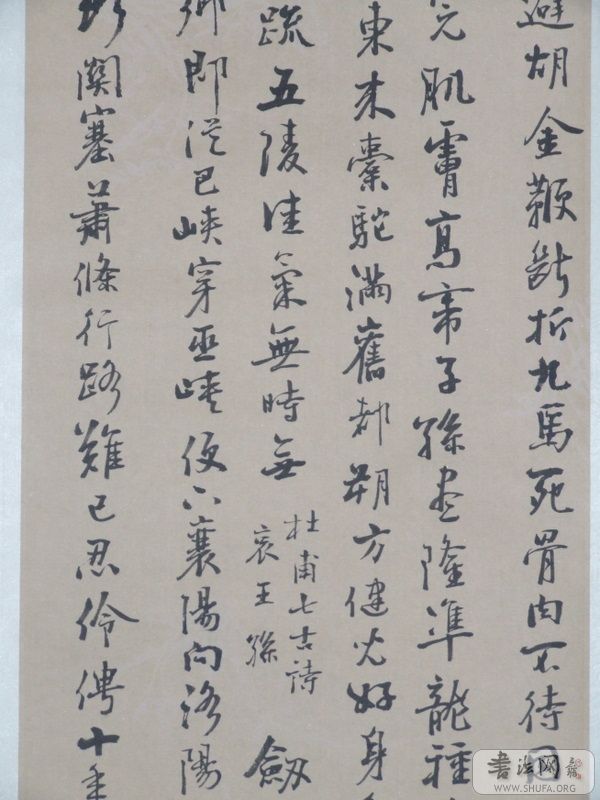 避胡金鞭斷折九馬死骨肉不待同
完肌膚高帝子孫盡隆準龍種
東來橐駝滿舊都朔方健兒好身
疏五陵佳氣無時無
杜甫七古詩
哀王孫
劍
鄉即從巴峽穿巫峽便下襄陽向洛陽
關塞蕭條行路難已忍伶俜十年
書法网
WWW.SHUFA.ORG